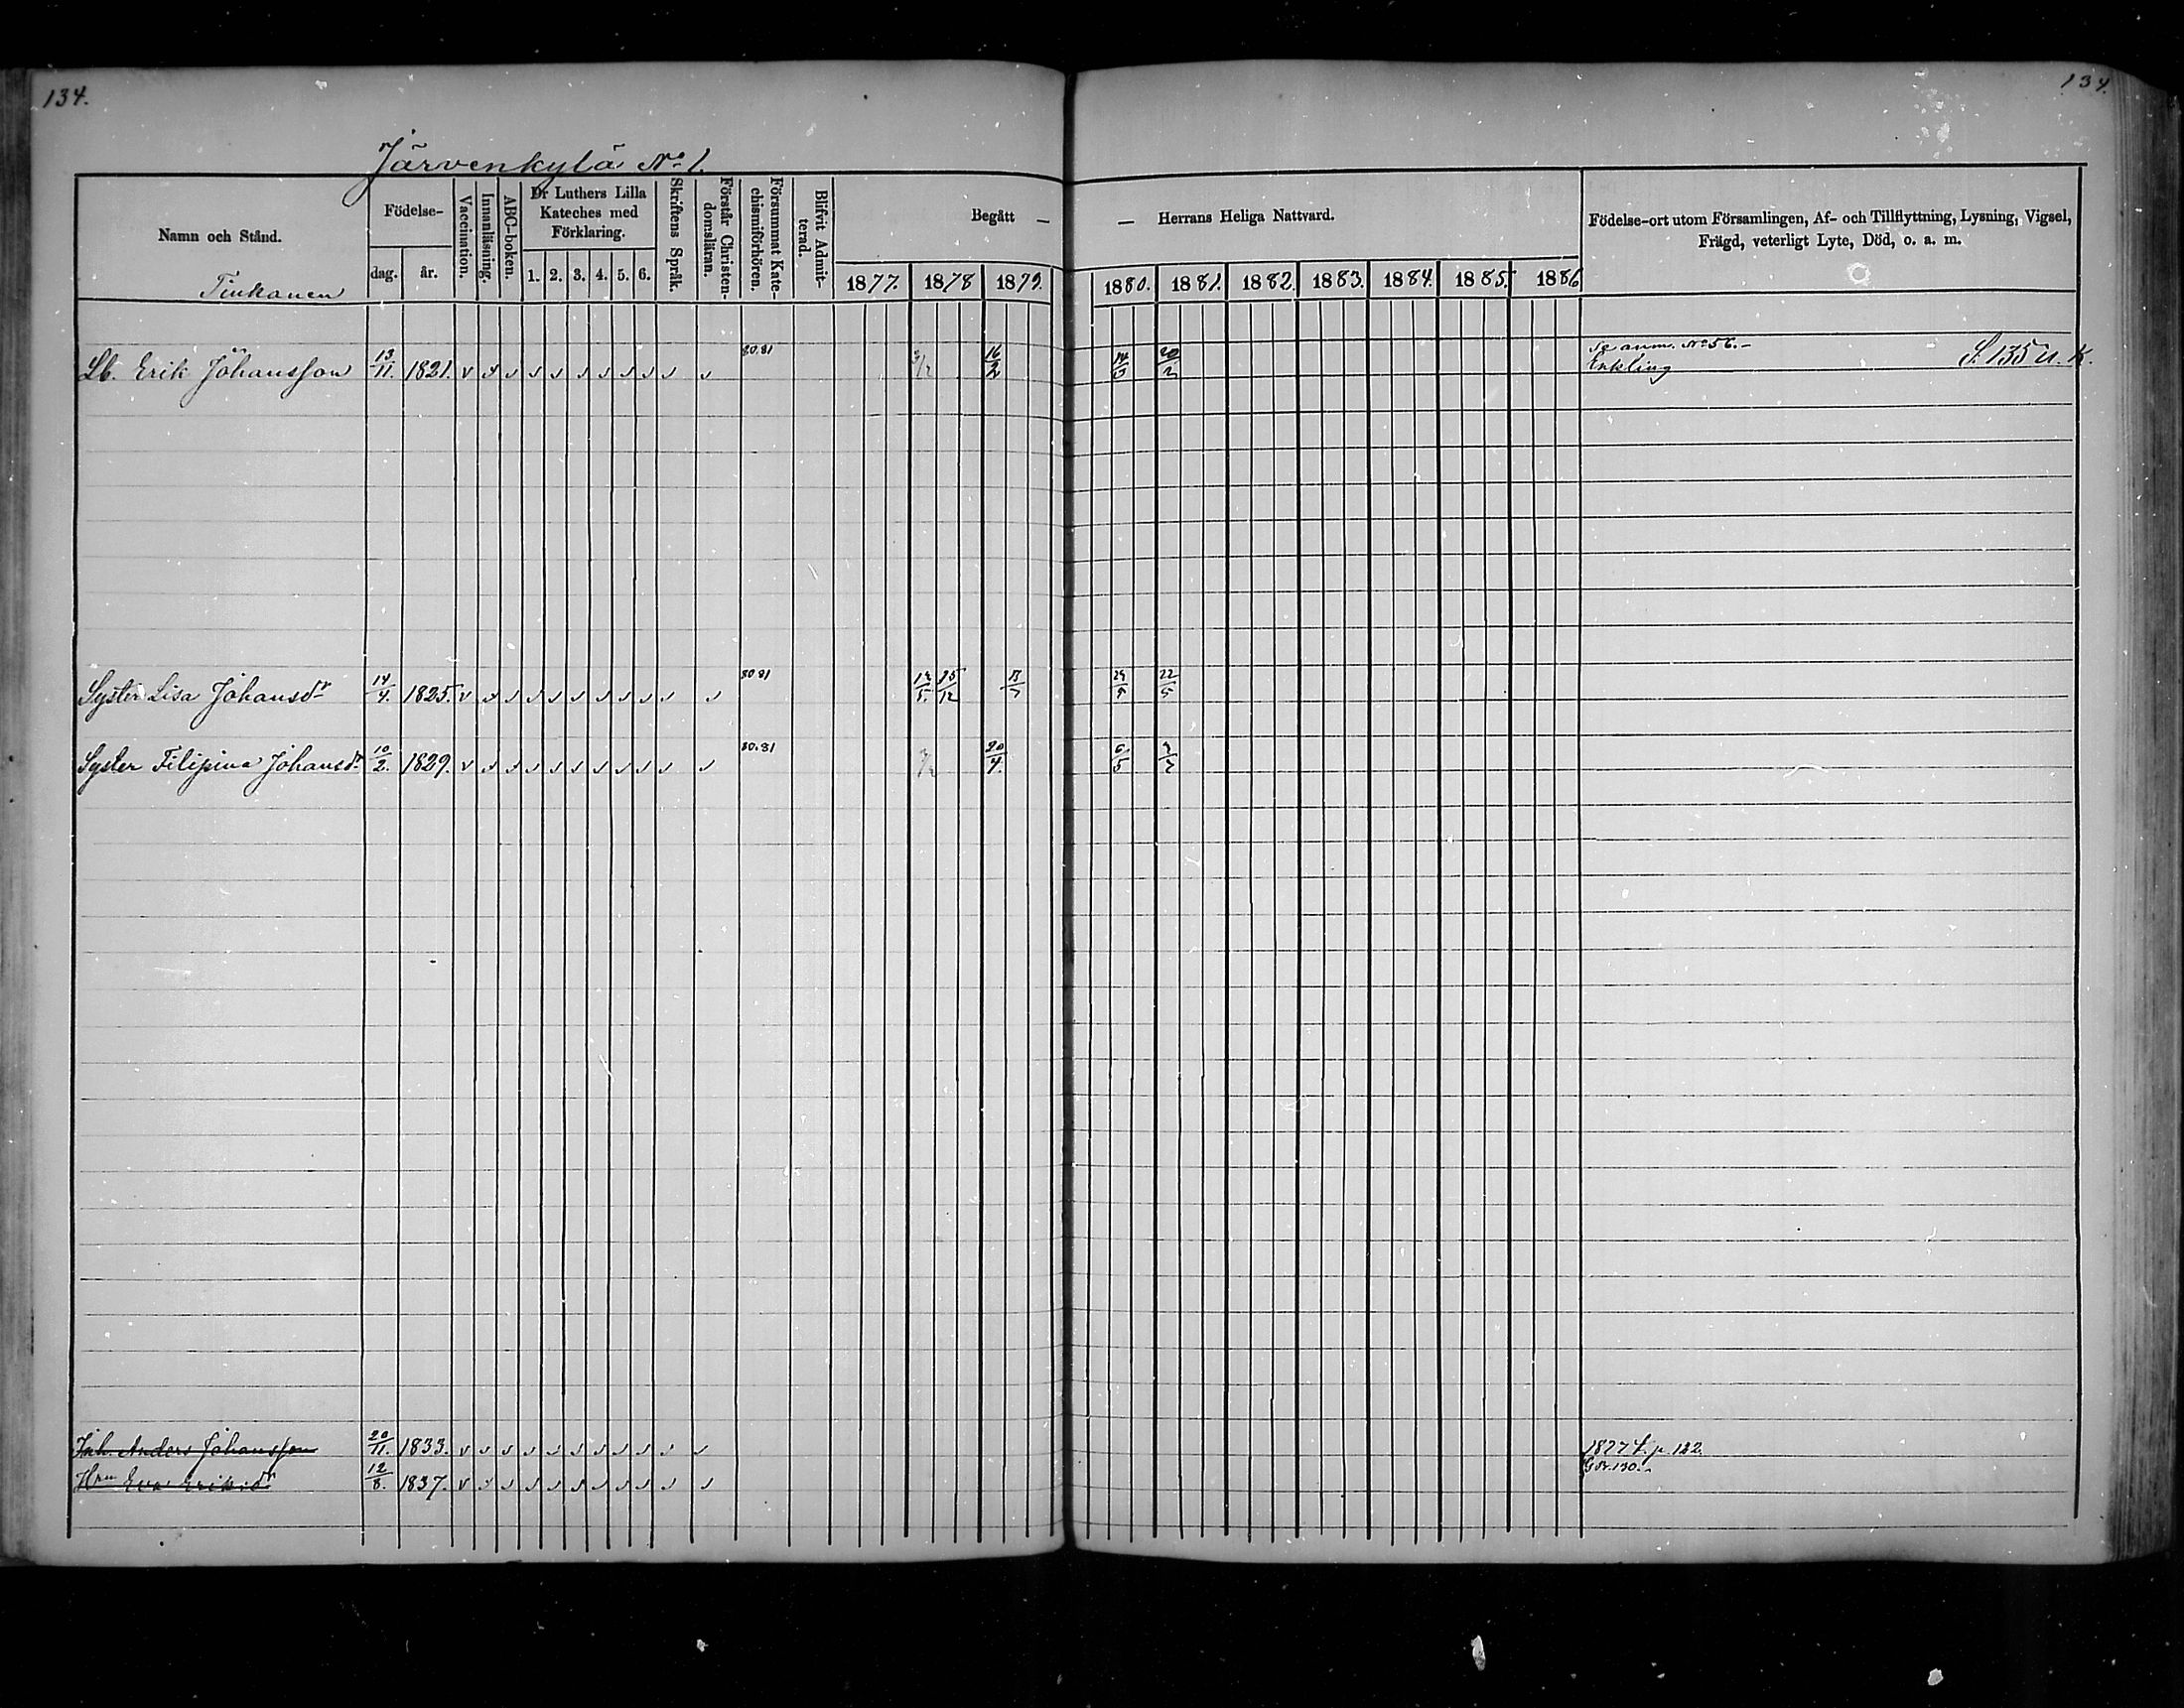 134.
134.
Järvenkylä No 1.
Namn och Stånd.
Födelse-
dag.
år.
Vaccination.
Innanläsning.
ABC-boken.
Dr Luthers Lilla
Kateches med
Förklaring.
1. 2. 3. 4. 5. 6.
Skriftens Språk.
Förstår Christen-
domsläran.
Försummat Kate-
chismiförhören.
Blifvit Admit-
terad.
Begått —
— Herrans Heliga Nattvard.
1877. 1878 1879. 1880. 1881. 1882. 1883. 1884. 1885. 1886
Födelse-ort utom Församlingen, Af- och Tillflyttning, Lysning, Vigsel,
Frägd, veterligt Lyte, Död, o. a. m.
Tiukanen
Se anm. No 56.-
Lb. Erik Johansson 13/11. 1821. v v v v v v v v v v v 80.81 16/2 20/2 Enkling S. 135 u. K.
Syster Lisa Johansdr 14/4. 1825. v v v v v v v v v v v 80 81 25/12 22/5
Syster Filipina Johansdr 10/2. 1829. v v v v v v v v v v v 80.81 20/4. 6/5
Inh. Anders Johansson 20/11. 1833. v v v v v v v v v v v p. 122.
Hru Eva Eriksdr 12/8. 1837. v v v v v v v v v v v